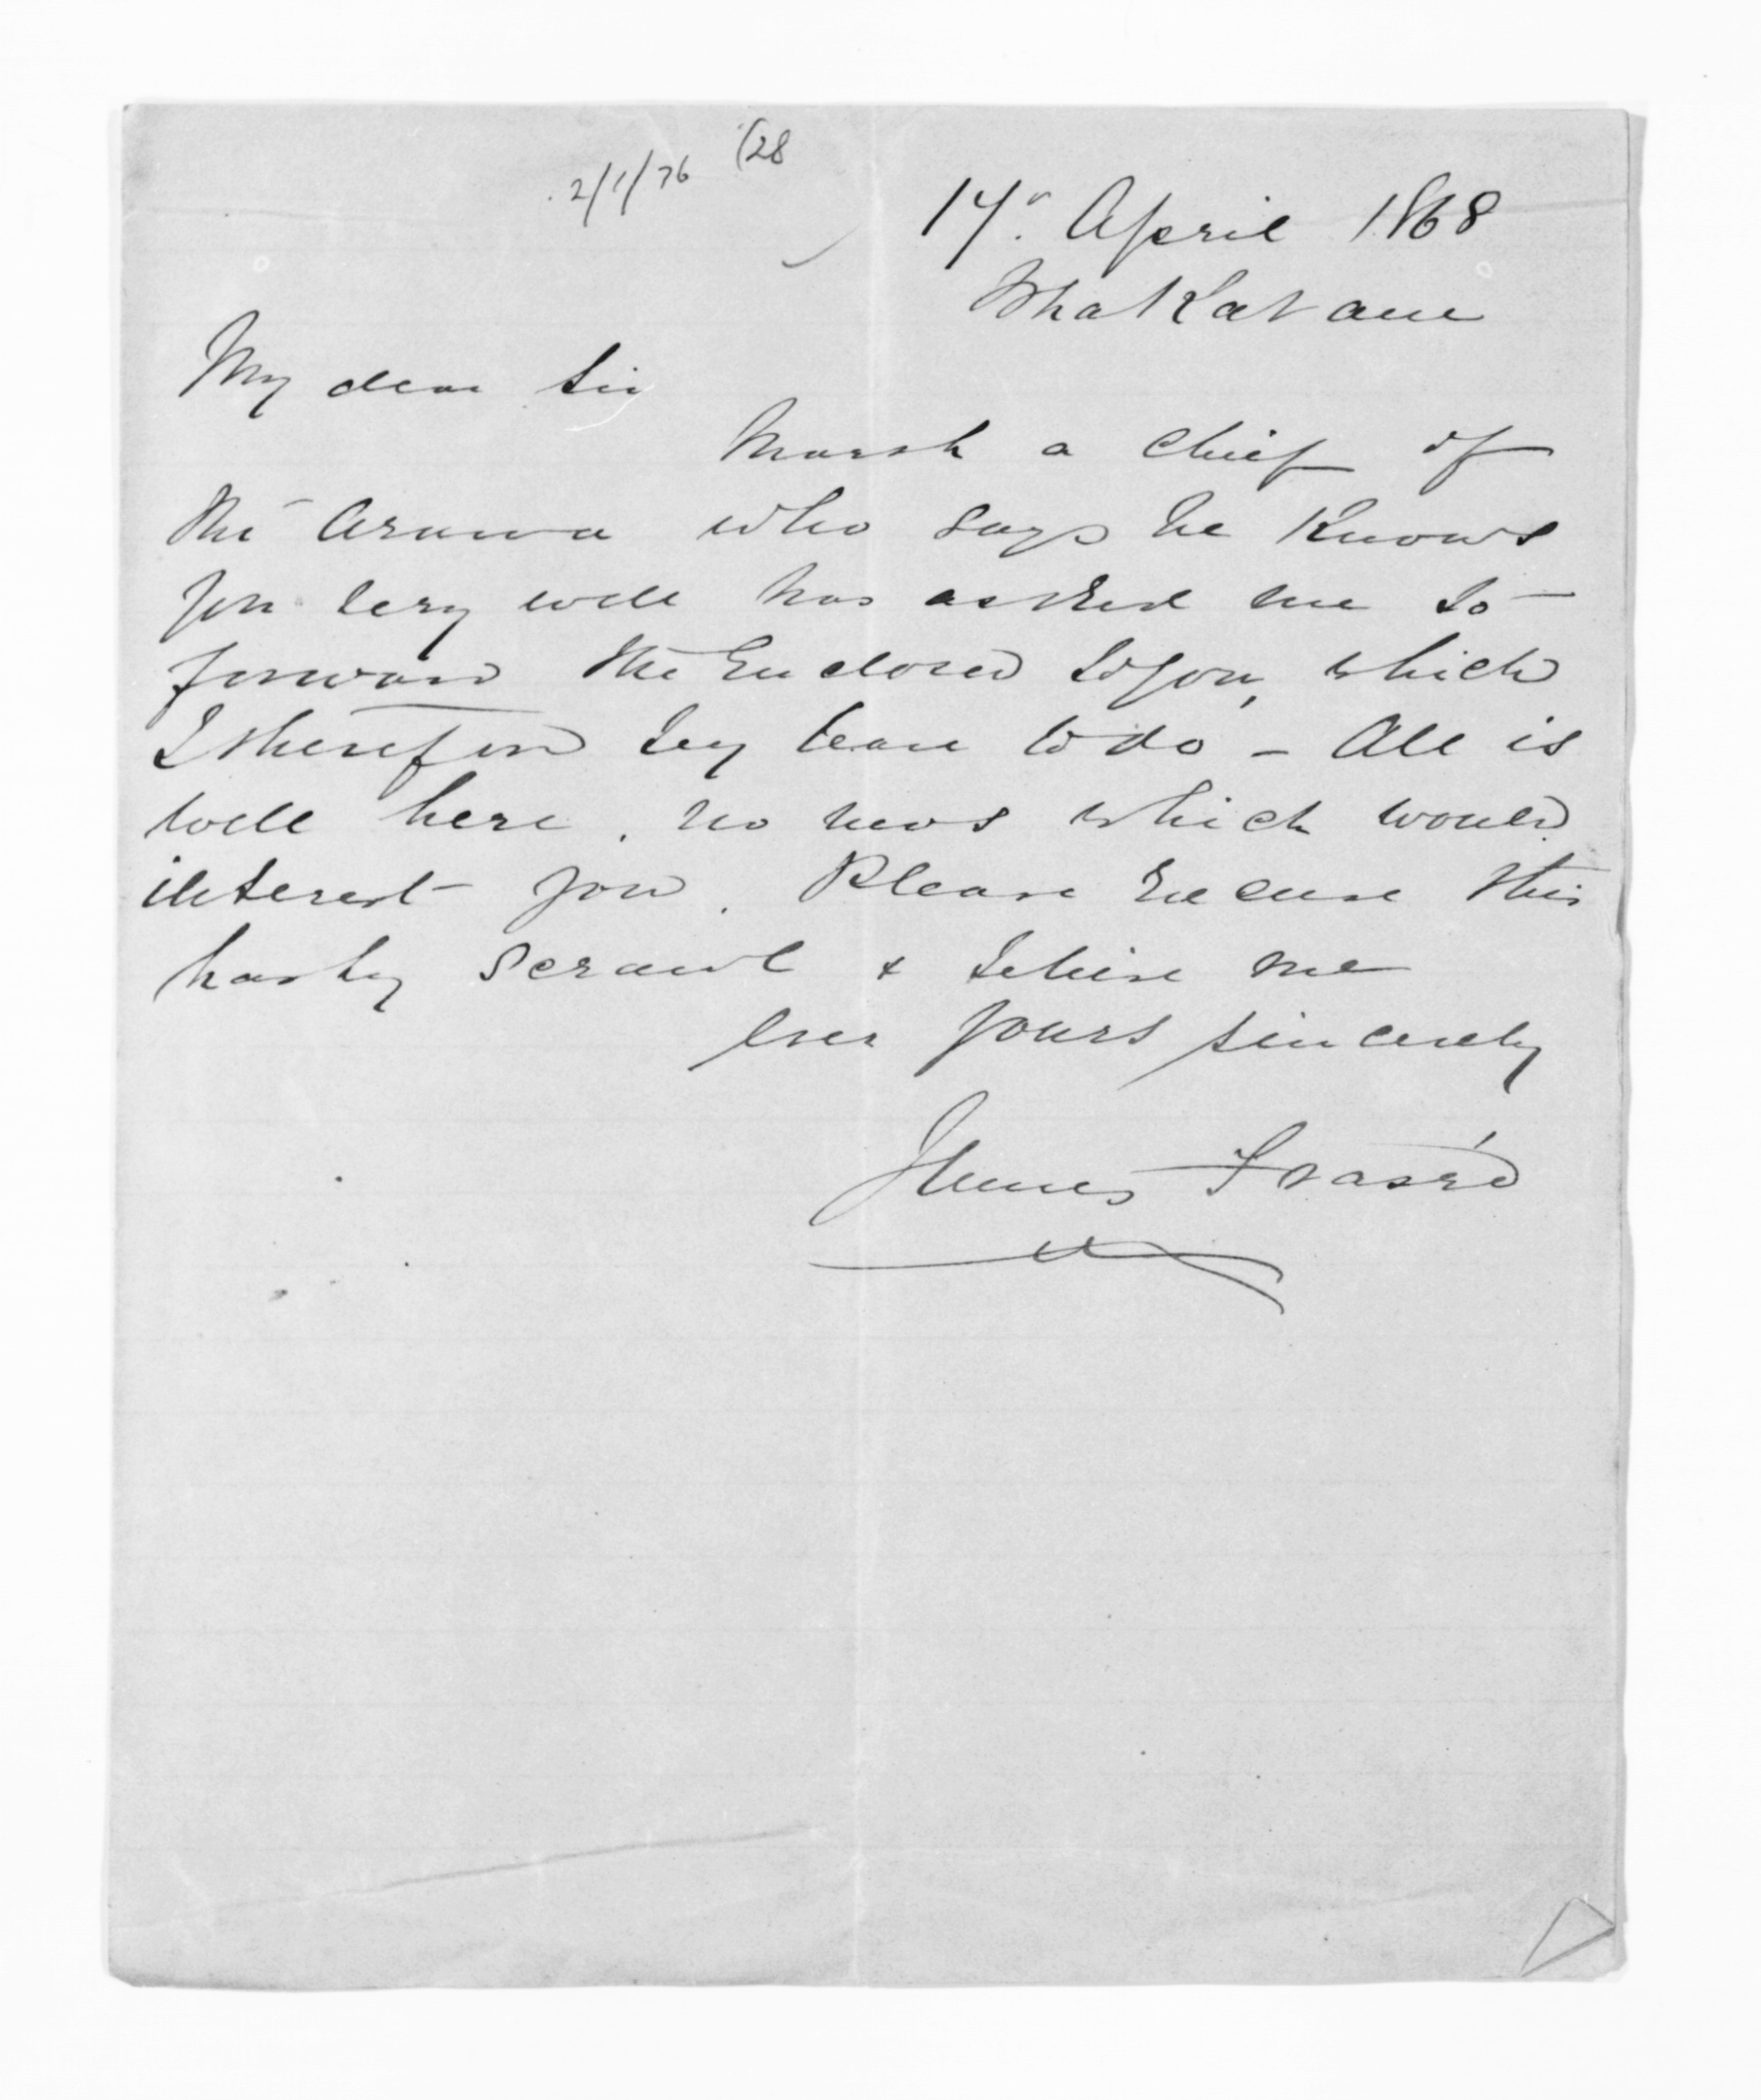 2/1/76 (28
17th April 1868
Whakatane
My dear Sir
Marsh a Chief of
the Arawa who says he Knows
you very well has asked me to
forward the Enclosed to you, which
I therefore beg leave to do - All is
well here. no news which would
interest you. Please Excuse this
hasty Scrawl & believe me
Ever yours sincerely
James Fraser